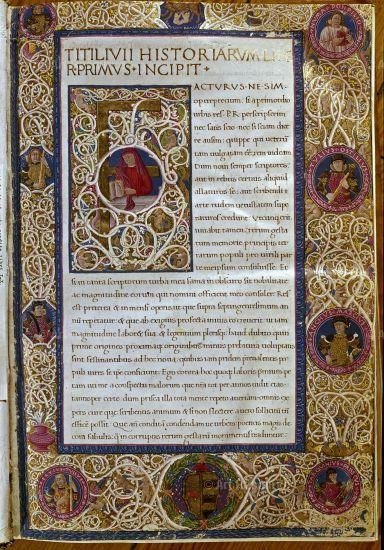 TITI LIVII HISTORIARVM LI
R·PRIMVS·INCIPIT·
ACTVRVS·NE SIM·
operepretium si a primordio
urbis res P.R. perscripserim
nec satis scio nec si sciam dice
re ausim: quippe qui ueterem
tum uulgatam esse rem uideam
Dum noui semper scriptores
aut in rebus certius aliquid
allaturos se: aut scribendi
arte rudem uetustatem supe
raturos credunt. Vtcunq; erit
iuuabit tamen rerum gesta
rum memorie principis ter
rarum populi pro uirili par
te me ipsum consuluisse. Et
si in tanta scriptorum turba mea fama in obscuro sit nobilitate
ac magnitudine eorum qui nomini officient meo consoler. Res
est preterea & immensi operis ut que supra septingentesimum an
num repetatur: & que ab exiguis profecta initiis eo creuerit: ut iam
magnitudine laboret sua. & legentium plerisq; haud dubito quin
prime origines proximaq; originibus minus prebitura uoluptatis
sint festinantibus ad hec noua: quibus iam pridem preualentis po
puli uires se ipse conficiunt. Ego contra hoc quoq; laboris premium pe
tam ut me a conspectu malorum que nostra tot per annos uidit etas
tantisper certe dum prisca illa tota mente repeto auertam: omnis ex
pers cure que scribentis animum & si non flectere a uero sollicitum tamen
efficere possit. Que ante conditam condendamue urbem poeticis magis de
cora fabulis: q̃ incorruptis rerum gestarum monumentis traduntur: